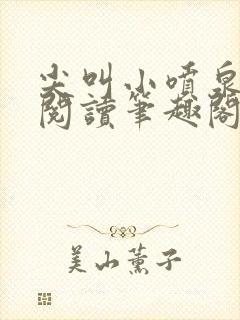 尖叫小噴泉
閱讀筆趣閣
美山薰子